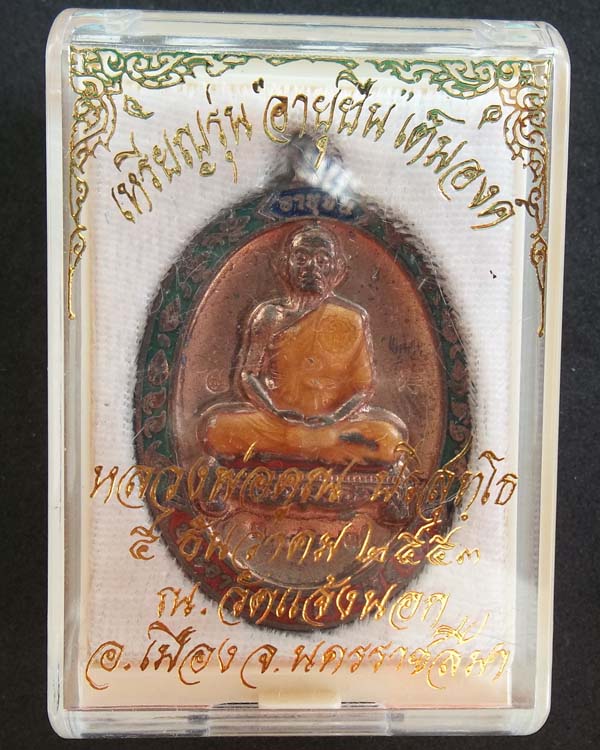 เหรียญรุ่น "อายุยืน" เต็มองค์
อายุยืน
หลวงพ่อคูณ ปริสุทฺโธ
๕ ธันวาคม ๒๕๕๓
ณ. วัดแจ้งนอก
อ.เมือง จ.นครราชสีมา